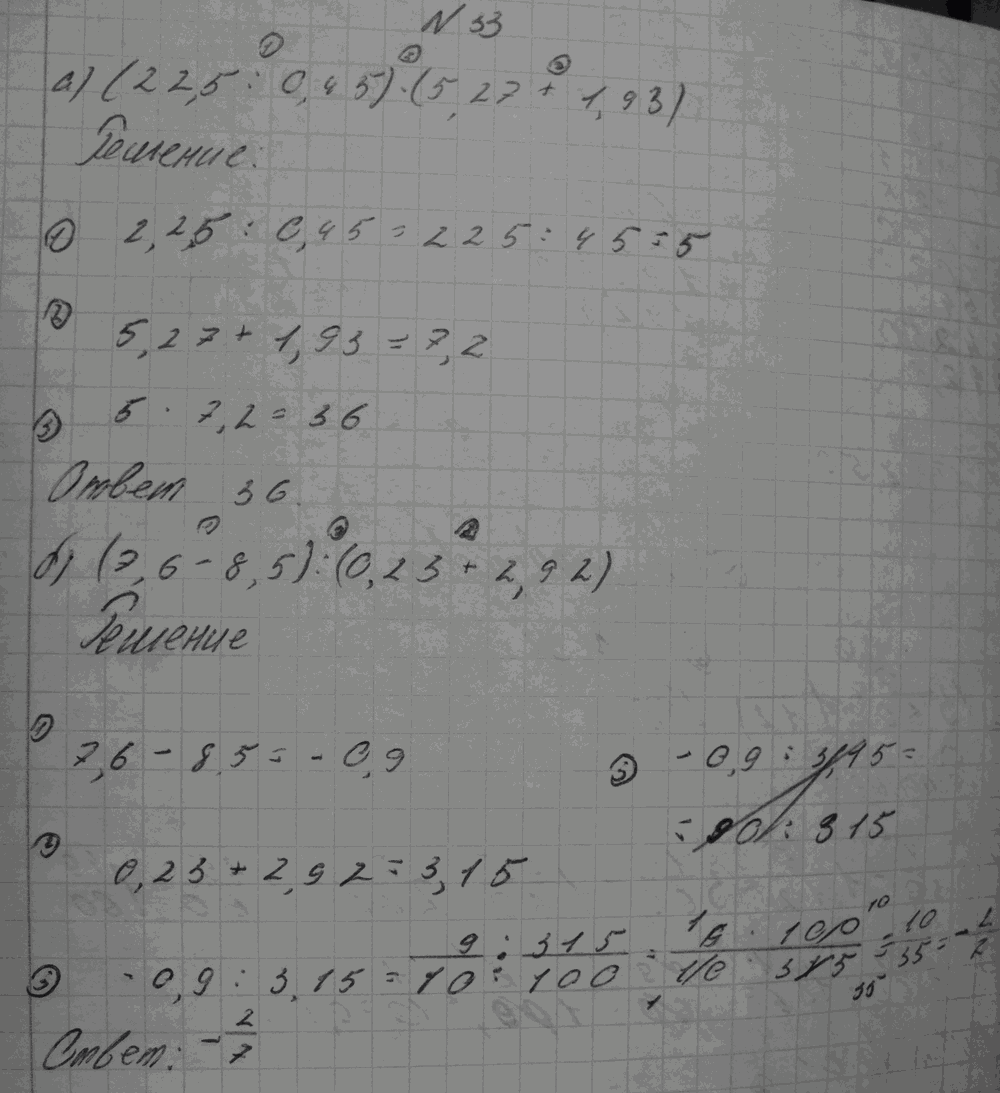 N 33
а) (22,5 : 0,45) · (5,27 + 1,93)
Решение:
① 2,2,5 : 0,45 = 225 : 45 = 5
② 5,27 + 1,93 = 7,2
③ 5 · 7,2 = 36
Ответ 36.
б) (7,6 - 8,5) : (0,23 + 2,92)
Решение
① 7,6 - 8,5 = - 0,9
③ - 0,9 : 3,15 =
= 90 : 315
② 0,23 + 2,92 = 3,15
③ - 0,9 : 3,15 = 9/10 : 315/100 = 9 · 100 / 10 · 315 = - 10/35 = - 2
Ответ: - 2/7